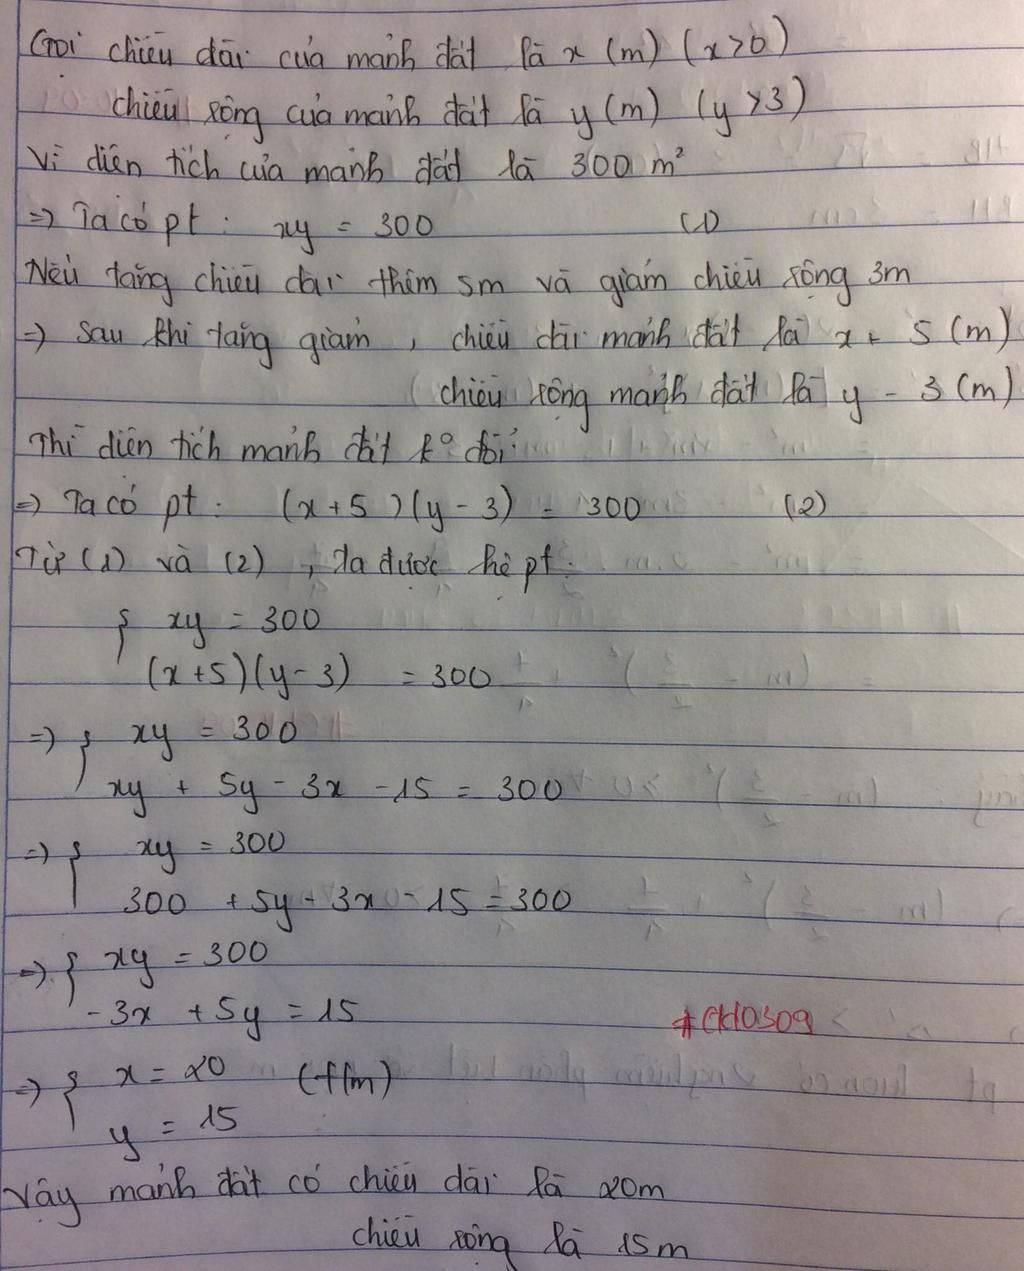 Gọi chiều dài của mảnh đất là x (m) (x>0)
chiều rộng của mảnh đất là y (m) (y >3)
Vì diện tích của mảnh đất là 300 m²
=> Ta có pt : xy = 300 (1)
Nếu tăng chiều dài thêm 5m và giảm chiều rộng 3m
=> sau khi tăng giảm , chiều dài mảnh đất là x + 5 (m)
chiều rộng mảnh đất là y - 3 (m)
Thì diện tích mảnh đất k° đổi
=> Ta có pt : (x+5)(y-3) = 300 (2)
Từ (1) và (2) , ta được hệ pt :
{ xy = 300
(x+5)(y-3) = 300
=> { xy = 300
xy + 5y - 3x - 15 = 300
=> { xy = 300
300 + 5y - 3x - 15 = 300
=> { xy = 300
-3x + 5y = 15
#CKH0309
=> { x = 20 (t/m)
y = 15
Vậy mảnh đất có chiều dài là 20m
chiều rộng là 15m